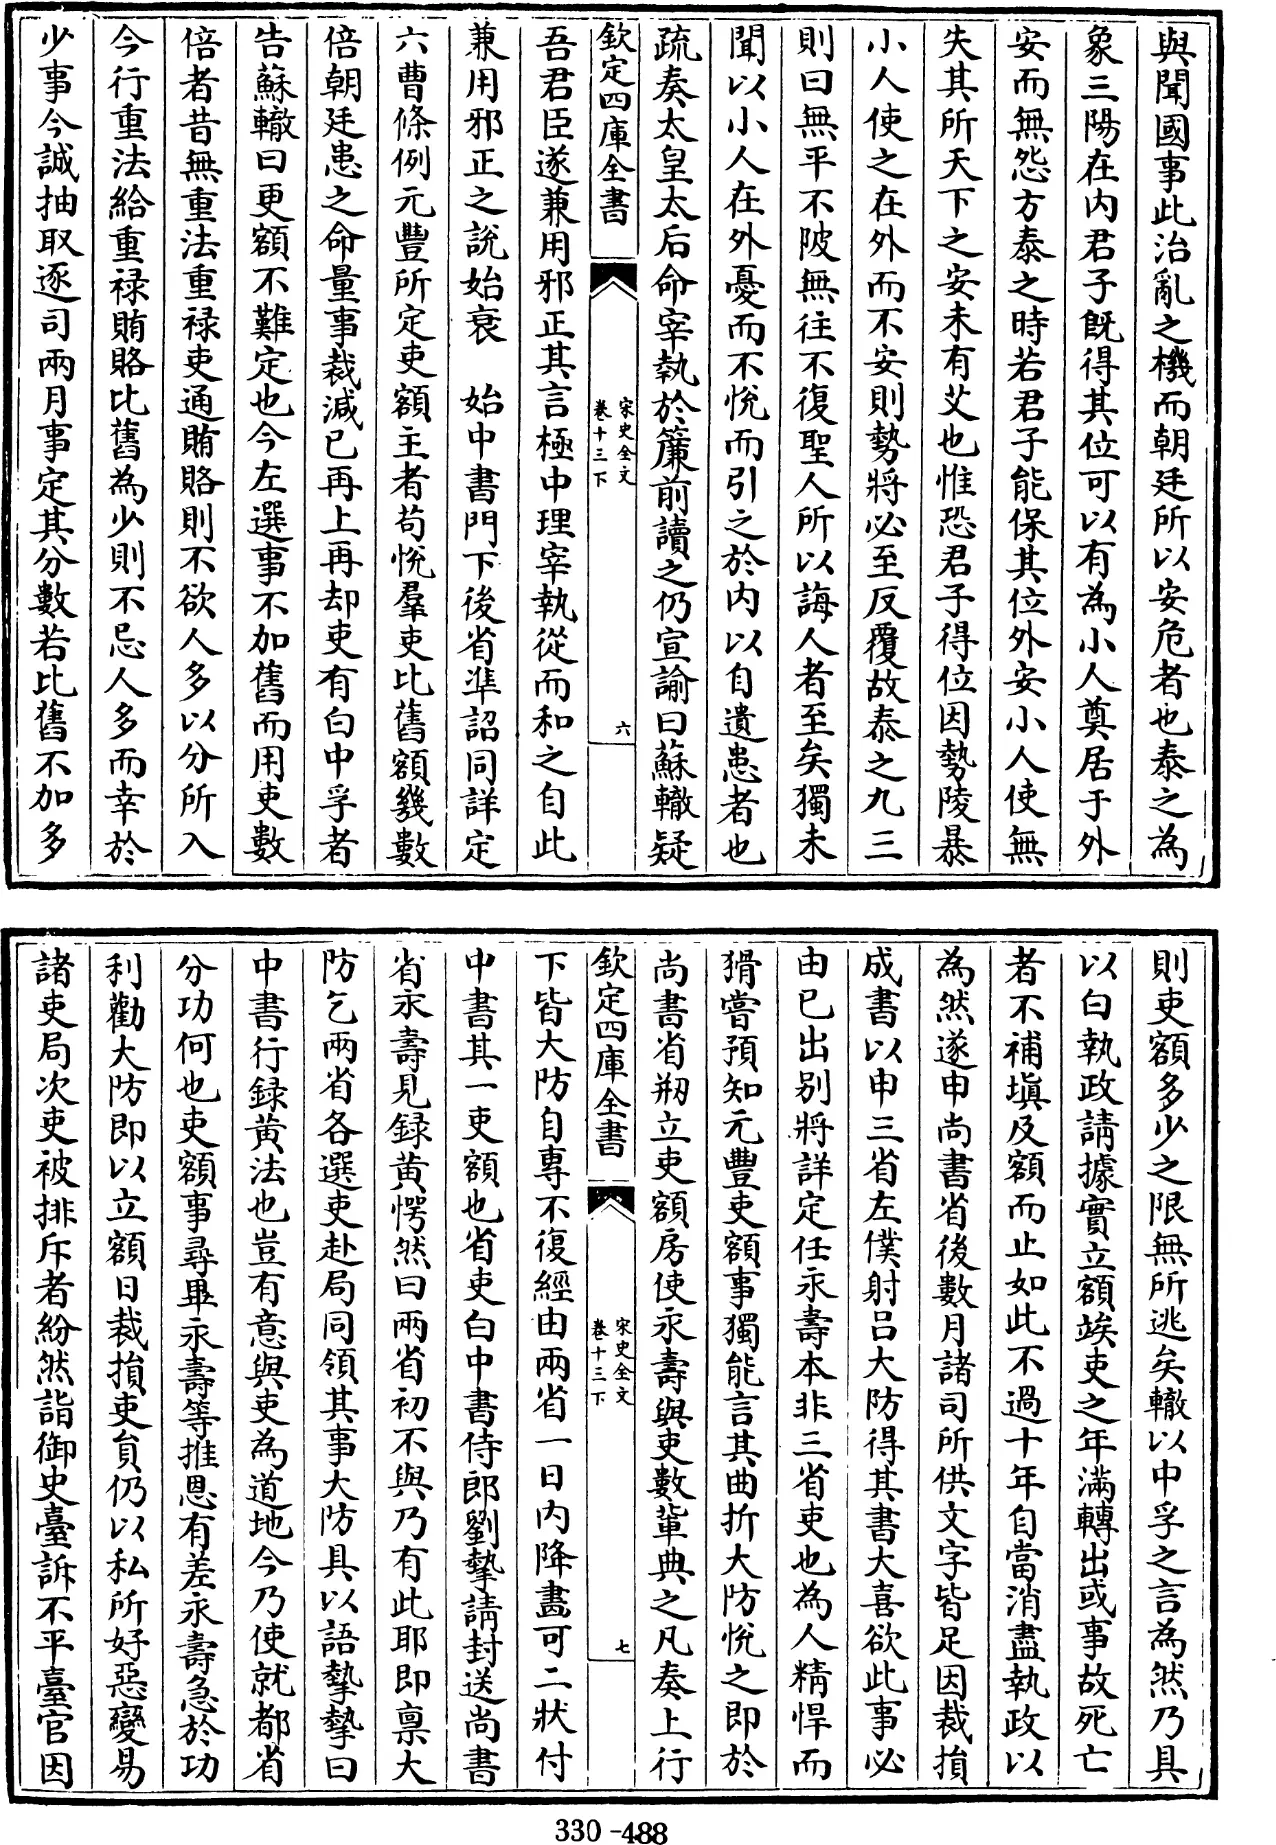 與聞國事此治亂之機而朝廷所以安危者也泰之為
象三陽在内君子既得其位可以有為小人奠居于外
安而無怨方泰之時若君子能保其位外安小人使無
失其所天下之安未有艾也惟恐君子得位因勢陵暴
小人使之在外而不安則勢將必至反覆故泰之九三
則曰無平不陂無往不復聖人所以誨人者至矣獨未
聞以小人在外憂而不悅而引之於内以自遺患者也
疏奏太皇太后命宰執於簾前讀之仍宣諭曰蘇轍疑
欽定四庫全書
宋史全文
卷十三下
六
吾君臣遂兼用邪正其言極中理宰執從而和之自此
兼用邪正之說始衰　始中書門下後省準詔同詳定
六曹條例元豐所定吏額主者苟悅羣吏比舊額幾數
倍朝廷患之命量事裁減已再上再却吏有白中孚者
告蘇轍曰吏額不難定也今左選事不加舊而用吏數
倍者昔無重法重禄吏通賄賂則不欲人多以分所入
今行重法給重禄賄賂比舊為少則不忌人多而幸於
少事今誠抽取逐司兩月事定其分數若比舊不加多
則吏額多少之限無所逃矣轍以中孚之言為然乃具
以白執政請據實立額竢吏之年滿轉出或事故死亡
者不補填及額而止如此不過十年自當消盡執政以
為然遂申尚書省後數月諸司所供文字皆足因裁損
成書以申三省左僕射吕大防得其書大喜欲此事必
由已出别將詳定任永壽本非三省吏也為人精悍而
猾嘗預知元豐吏額事獨能言其曲折大防悅之即於
尚書省剏立吏額房使永壽與吏數軰典之凡奏上行
欽定四庫全書
宋史全文
卷十三下
七
下皆大防自專不復經由兩省一日内降畫可二狀付
中書其一吏額也省吏白中書侍郎劉摯請封送尚書
省永壽見録黄愕然曰兩省初不與乃有此耶即禀大
防乞兩省各選吏赴局同領其事大防具以語摯摯曰
中書行録黄法也豈有意與吏為道地今乃使就都省
分功何也吏額事尋畢永壽等推恩有差永壽急於功
利勸大防即以立額日裁損吏員仍以私所好惡變易
諸吏局次吏被排斥者紛然詣御史臺訴不平臺官因
330-488